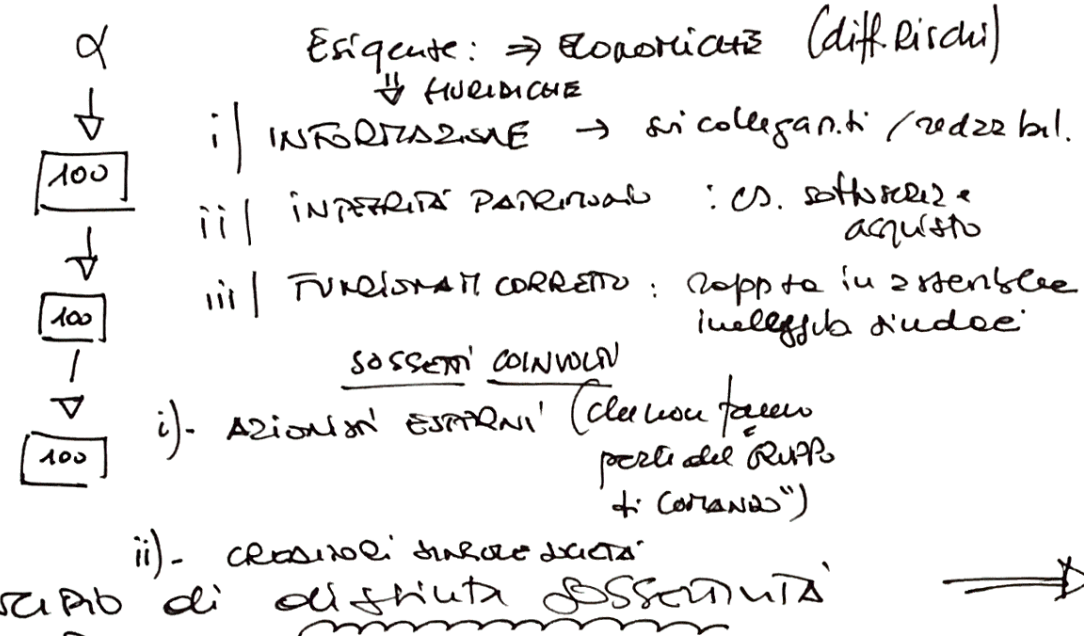 α
Esigenze: ⇒ ECONOMICHE (diff. Rischi)
⇓ GIURIDICHE
i| INFORMAZIONE → sui collegam.ti / redaz bil.
100
ii| INTEGRITÀ PATRIMONIALE : cs. sottoscriz e
acquisto
iii| FUNZIONAM CORRETTO : rappta in assemblea
100
ineleggib.tà sindaci
SOGGETTI COINVOLTI
i)- AZIONISTI ESTERNI (che non fanno
100
parte del "GRUPPO
di COMANDO")
ii)- CREDITORI SINGOLE SOCIETÀ
di distinta SOGGETTIVITÀ